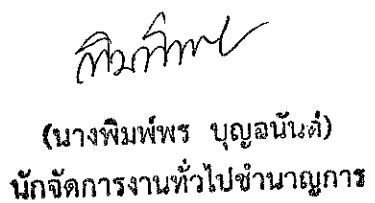 (นางพิมพ์พร บุญอนันต์)
นักจัดการงานทั่วไปชำนาญการ